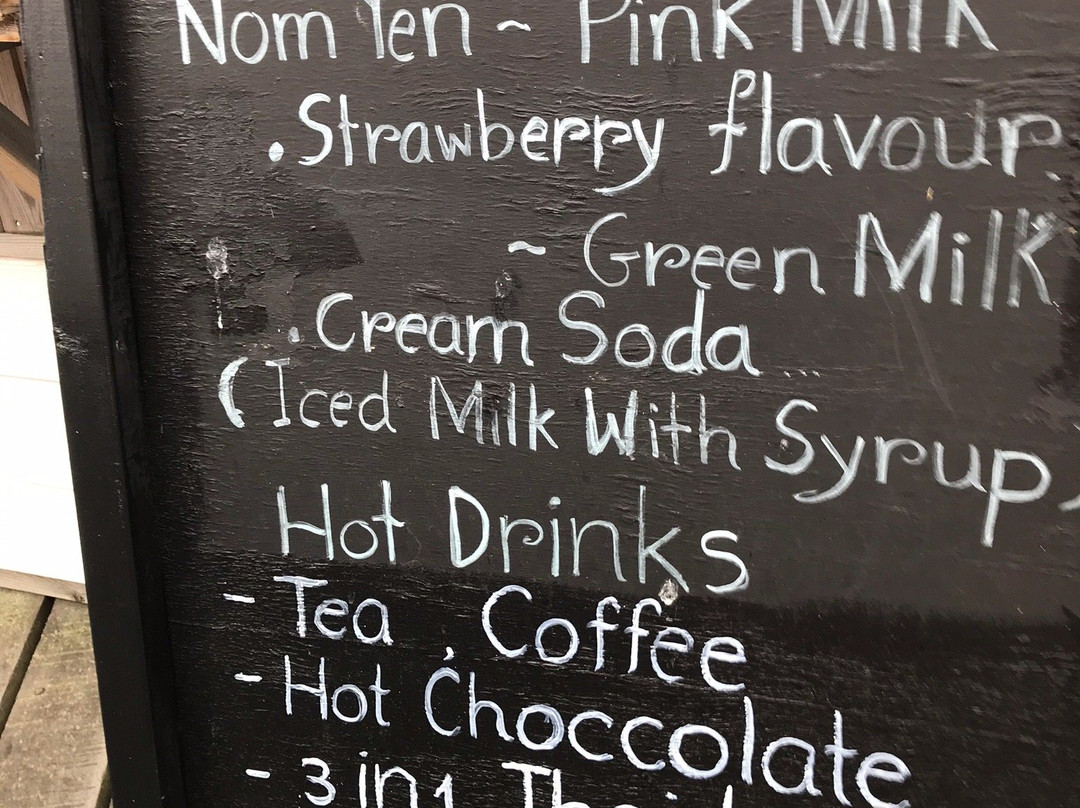 Nom Yen ~ Pink Milk
. Strawberry flavour.
~ Green Milk
. Cream Soda ...
(Iced Milk With Syrup)
Hot Drinks
- Tea , Coffee
- Hot Choccolate
- 3 in 1 Thai